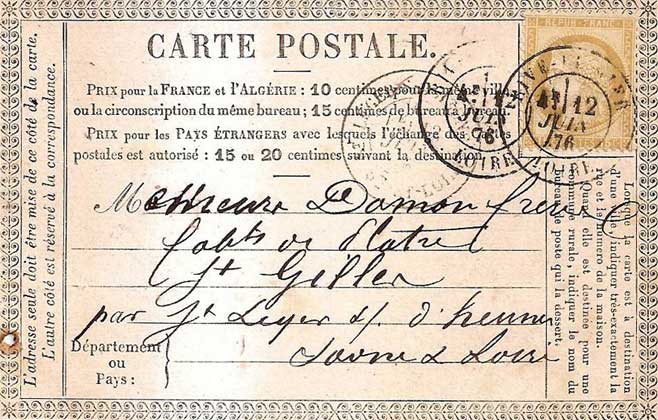 CARTE POSTALE.
PRIX pour la FRANCE et l'ALGÉRIE : 10 centimes pour la même ville
ou la circonscription du même bureau ; 15 centimes de bureau à bureau.
PRIX pour les PAYS ÉTRANGERS avec lesquels l'échange des Cartes
postales est autorisé : 15 ou 20 centimes suivant la destination.
REPUB FRANC
12
JUIN
76
LOIRE
12
JUIN
76
LOIRE
Messieurs Damon frères
fabts de Plâtre
St Gilles
par St Leger s/. d'heune
Saone & Loire
Département
ou
Pays :
L'adresse seule doit être mise de ce côté de la carte.
L'autre côté est réservé à la correspondance.
Lorsque la carte est à destination
d'une ville, indiquer très-exactement la
rue et le numéro de la maison.
Quand elle est destinée pour une
commune rurale, indiquer le nom du
bureau de poste qui la dessert.